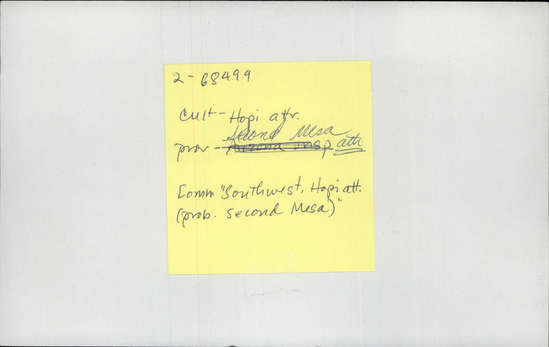 2-68499
Cult - Hopi attr.
Second Mesa
prov - Arizona insp attr
Comm "Southwest, Hopi att.
(prob. Second Mesa)"